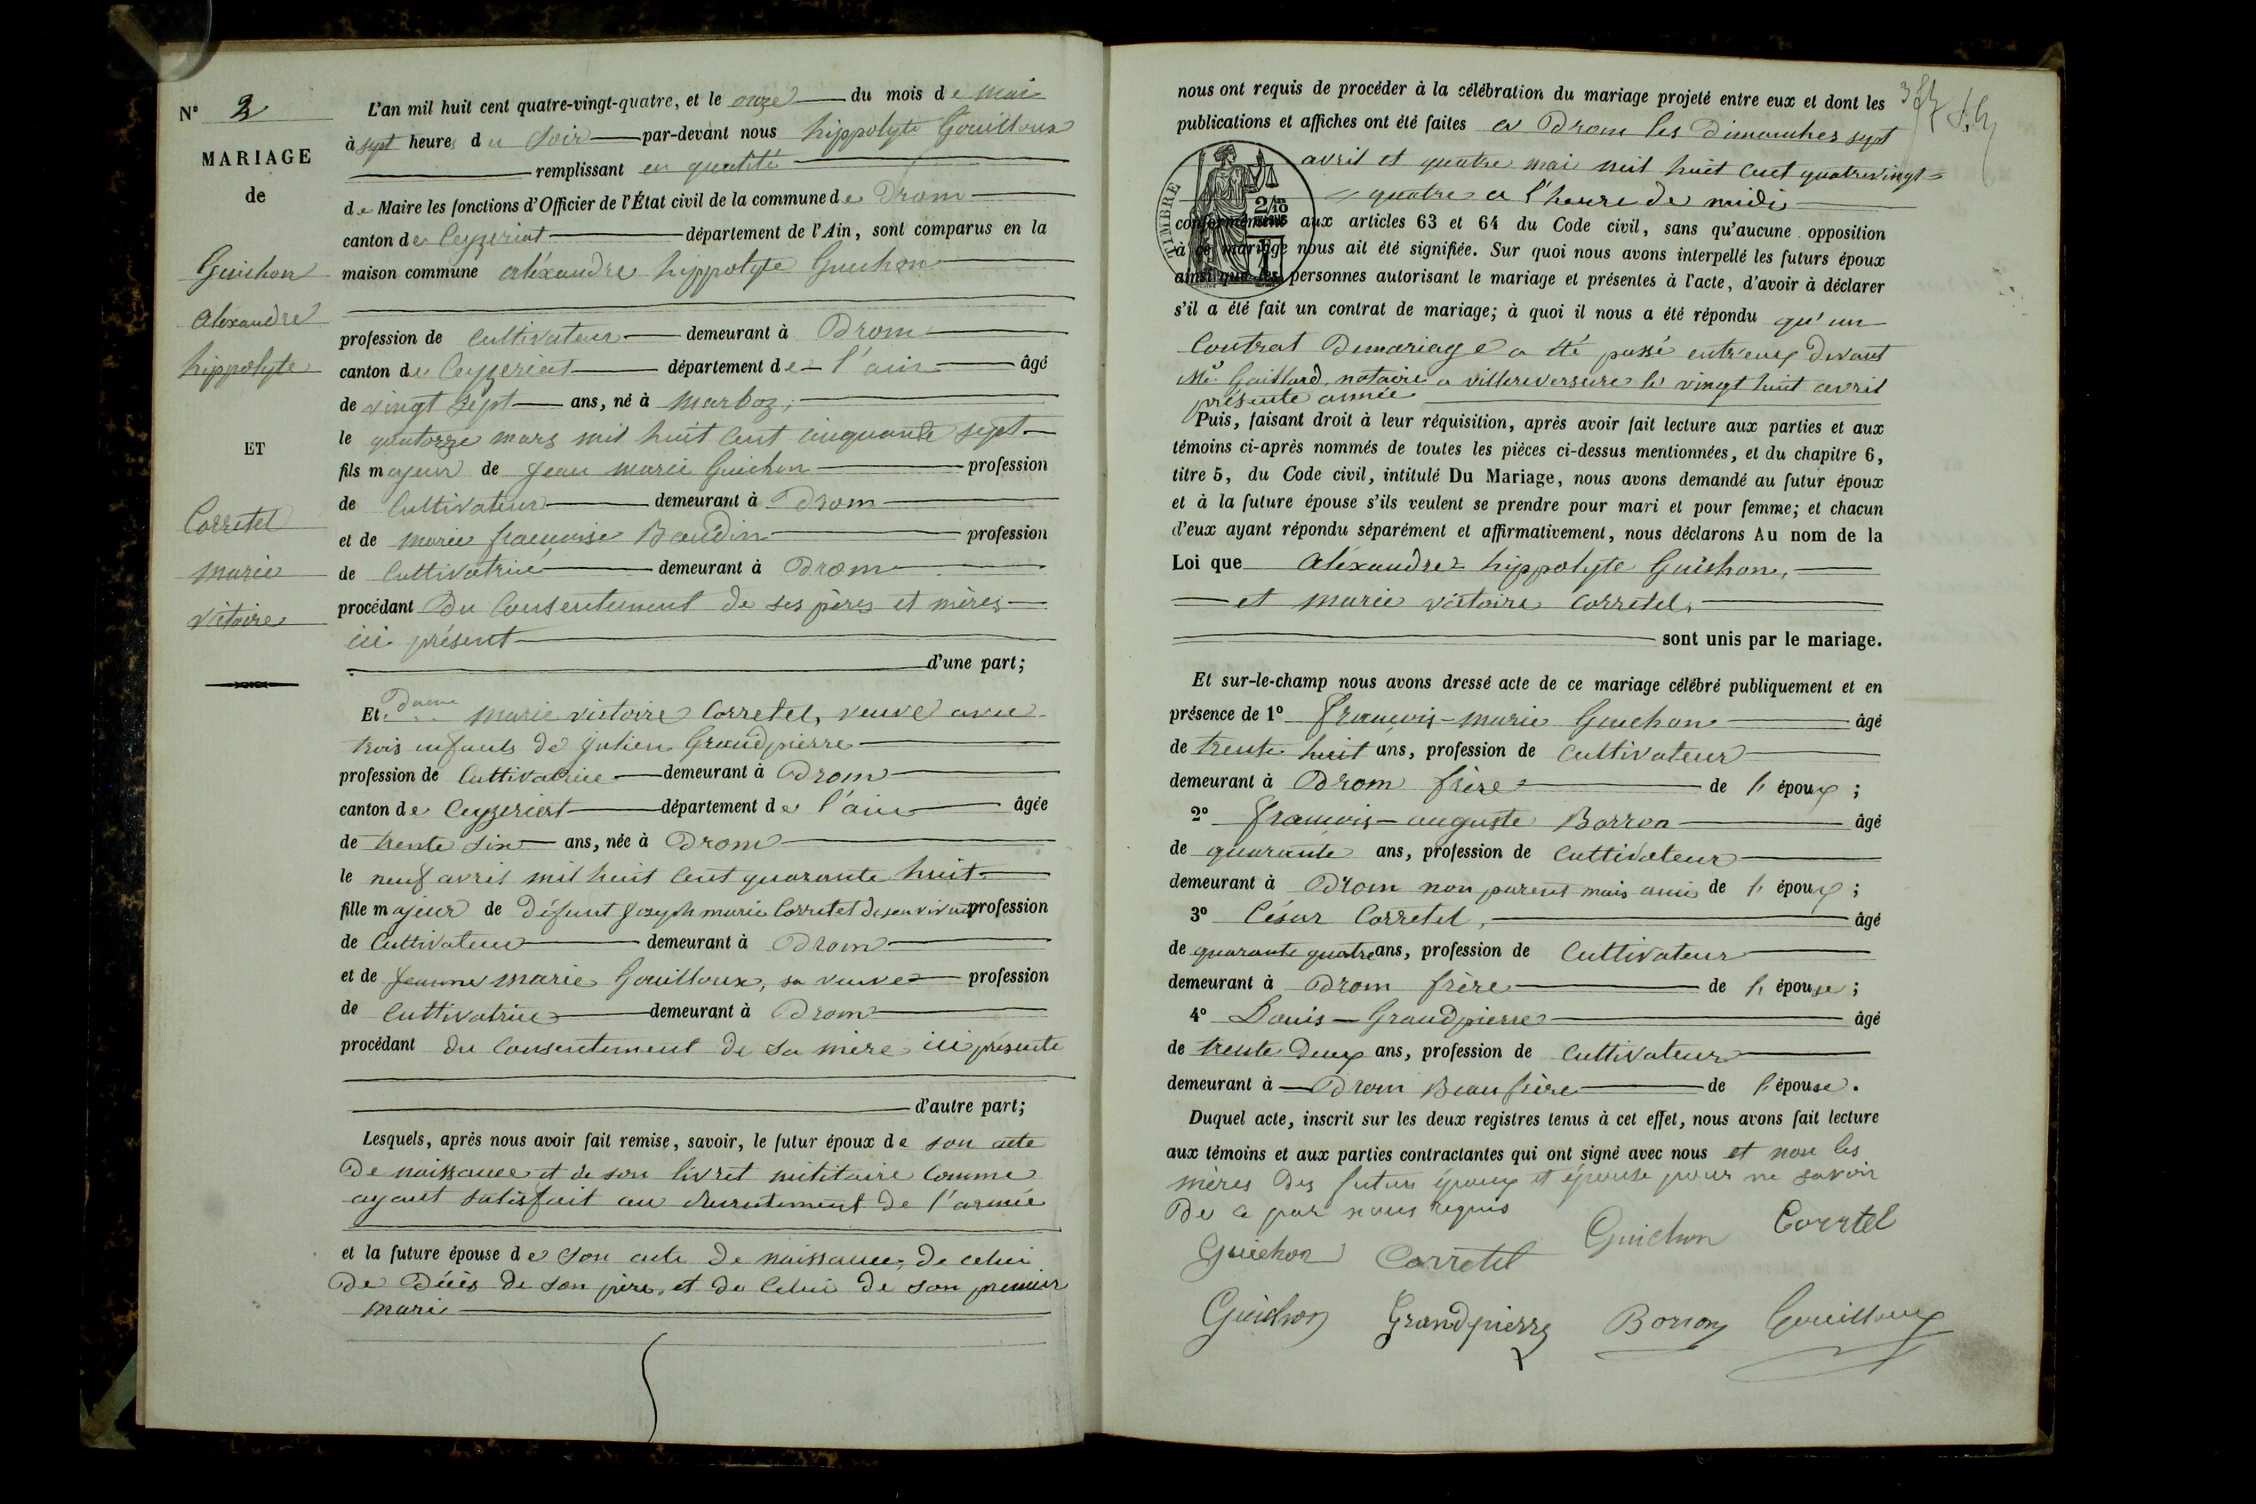 N° 2
MARIAGE
de
Guichon
Alexandre
hippolyte
ET
Corretel
marie
victoire
L'an mil huit cent quatre-vingt-quatre, et le onze du mois de mai
à sept heures du Soir par-devant nous hippolyte Gouilloux
remplissant en qualité
de Maire les fonctions d'Officier de l'État civil de la commune de Drom
canton de Ceyzeriat département de l'Ain, sont comparus en la
maison commune aléxandre hippolyte Guichon
profession de Cultivateur demeurant à Drom
canton de Ceyzeriat département de l'ain âgé
de vingt sept ans, né à Marboz,
le quatorze mars mil huit Cent cinquante sept
fils majeur de Jean marie Guichon profession
de Cultivateur demeurant à Drom
et de marie francoise Baudin profession
de Cultivatrice demeurant à Drom
procédant Du Consentement de ses pères et mères
ici présent
d'une part;
Et Dame marie victoire Corretel, veuve avec
trois enfants de Julien Grandpierre
profession de Cultivatrice demeurant à Drom
canton de Ceyzeriat département de l'ain âgée
de trente six ans, née à Drom
le neuf avril mil huit Cent quarante huit
fille majeur de Défunt Joseph marie Corretel de son vivant profession
de Cultivateur demeurant à Drom
et de Jeanne marie Gouilloux, sa veuve profession
de Cultivatrice demeurant à Drom
procédant du Consentement de sa mère ici présente
d'autre part;
Lesquels, après nous avoir fait remise, savoir, le futur époux de son acte
De naissance et de son livret militaire Comme
ayant satisfait au recrutement de l'armée
et la future épouse de son acte De naissance, de celui
De Décès de son père, et de Celui de son premier
mari
nous ont requis de procéder à la célébration du mariage projeté entre eux et dont les
publications et affiches ont été faites a Drom les Dimanches sept
avril et quatre mai mil huit Cent quatrevingt=
= quatre a l'heure de midi
TIMBRE
2/10
conformément aux articles 63 et 64 du Code civil, sans qu'aucune opposition
à ce mariage nous ait été signifiée. Sur quoi nous avons interpellé les futurs époux
ainsi que les personnes autorisant le mariage et présentes à l'acte, d'avoir à déclarer
s'il a été fait un contrat de mariage; à quoi il nous a été répondu qu'un
Contrat Demariage a été passé entr'eux Devant
Me Gaillard, notaire a villereversure le vingt huit avril
présente année
Puis, faisant droit à leur réquisition, après avoir fait lecture aux parties et aux
témoins ci-après nommés de toutes les pièces ci-dessus mentionnées, et du chapitre 6,
titre 5, du Code civil, intitulé Du Mariage, nous avons demandé au futur époux
et à la future épouse s'ils veulent se prendre pour mari et pour femme; et chacun
d'eux ayant répondu séparément et affirmativement, nous déclarons Au nom de la
Loi que Aléxandre hippolyte Guichon,
et marie victoire Corretel,
sont unis par le mariage.
Et sur-le-champ nous avons dressé acte de ce mariage célébré publiquement et en
présence de 1° François-marie Guichon âgé
de trente huit ans, profession de Cultivateur
demeurant à Drom frère de l'époux;
2° François-auguste Borron âgé
de quarante ans, profession de Cultivateur
demeurant à Drom non parent mais ami de l'époux;
3° César Corretel, âgé
de quarante quatre ans, profession de Cultivateur
demeurant à Drom frère de l'épouse;
4° Louis-Grandpierre âgé
de trente deux ans, profession de Cultivateur
demeurant à Drom Beaufrère de l'épouse.
Duquel acte, inscrit sur les deux registres tenus à cet effet, nous avons fait lecture
aux témoins et aux parties contractantes qui ont signé avec nous et non les
mères Des futurs époux et épouse pour ne savoir
De ce par nous requis
Guichon Corretel Guichon Corretel
Guichon Grandpierre Borron Gouilloux